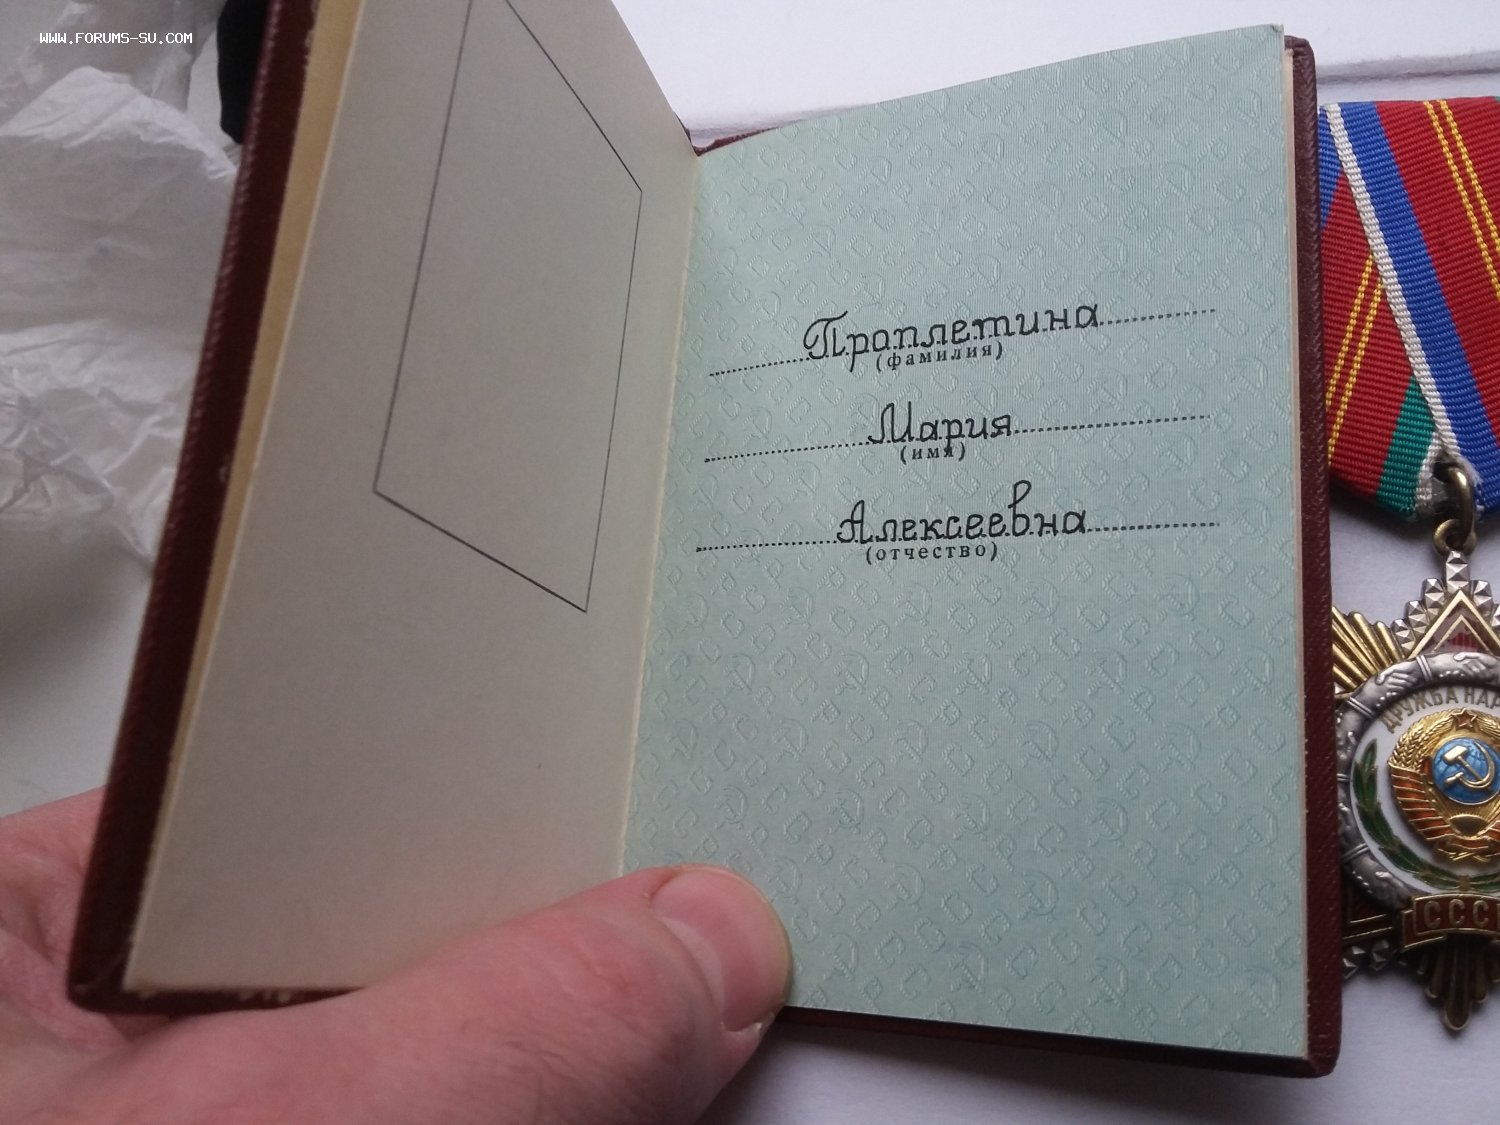 WWW.FORUMS-SU.COM
Проплетина
(фамилия)
Мария
(имя)
Алексеевна
(отчество)
ДРУЖБА НАР
СССР